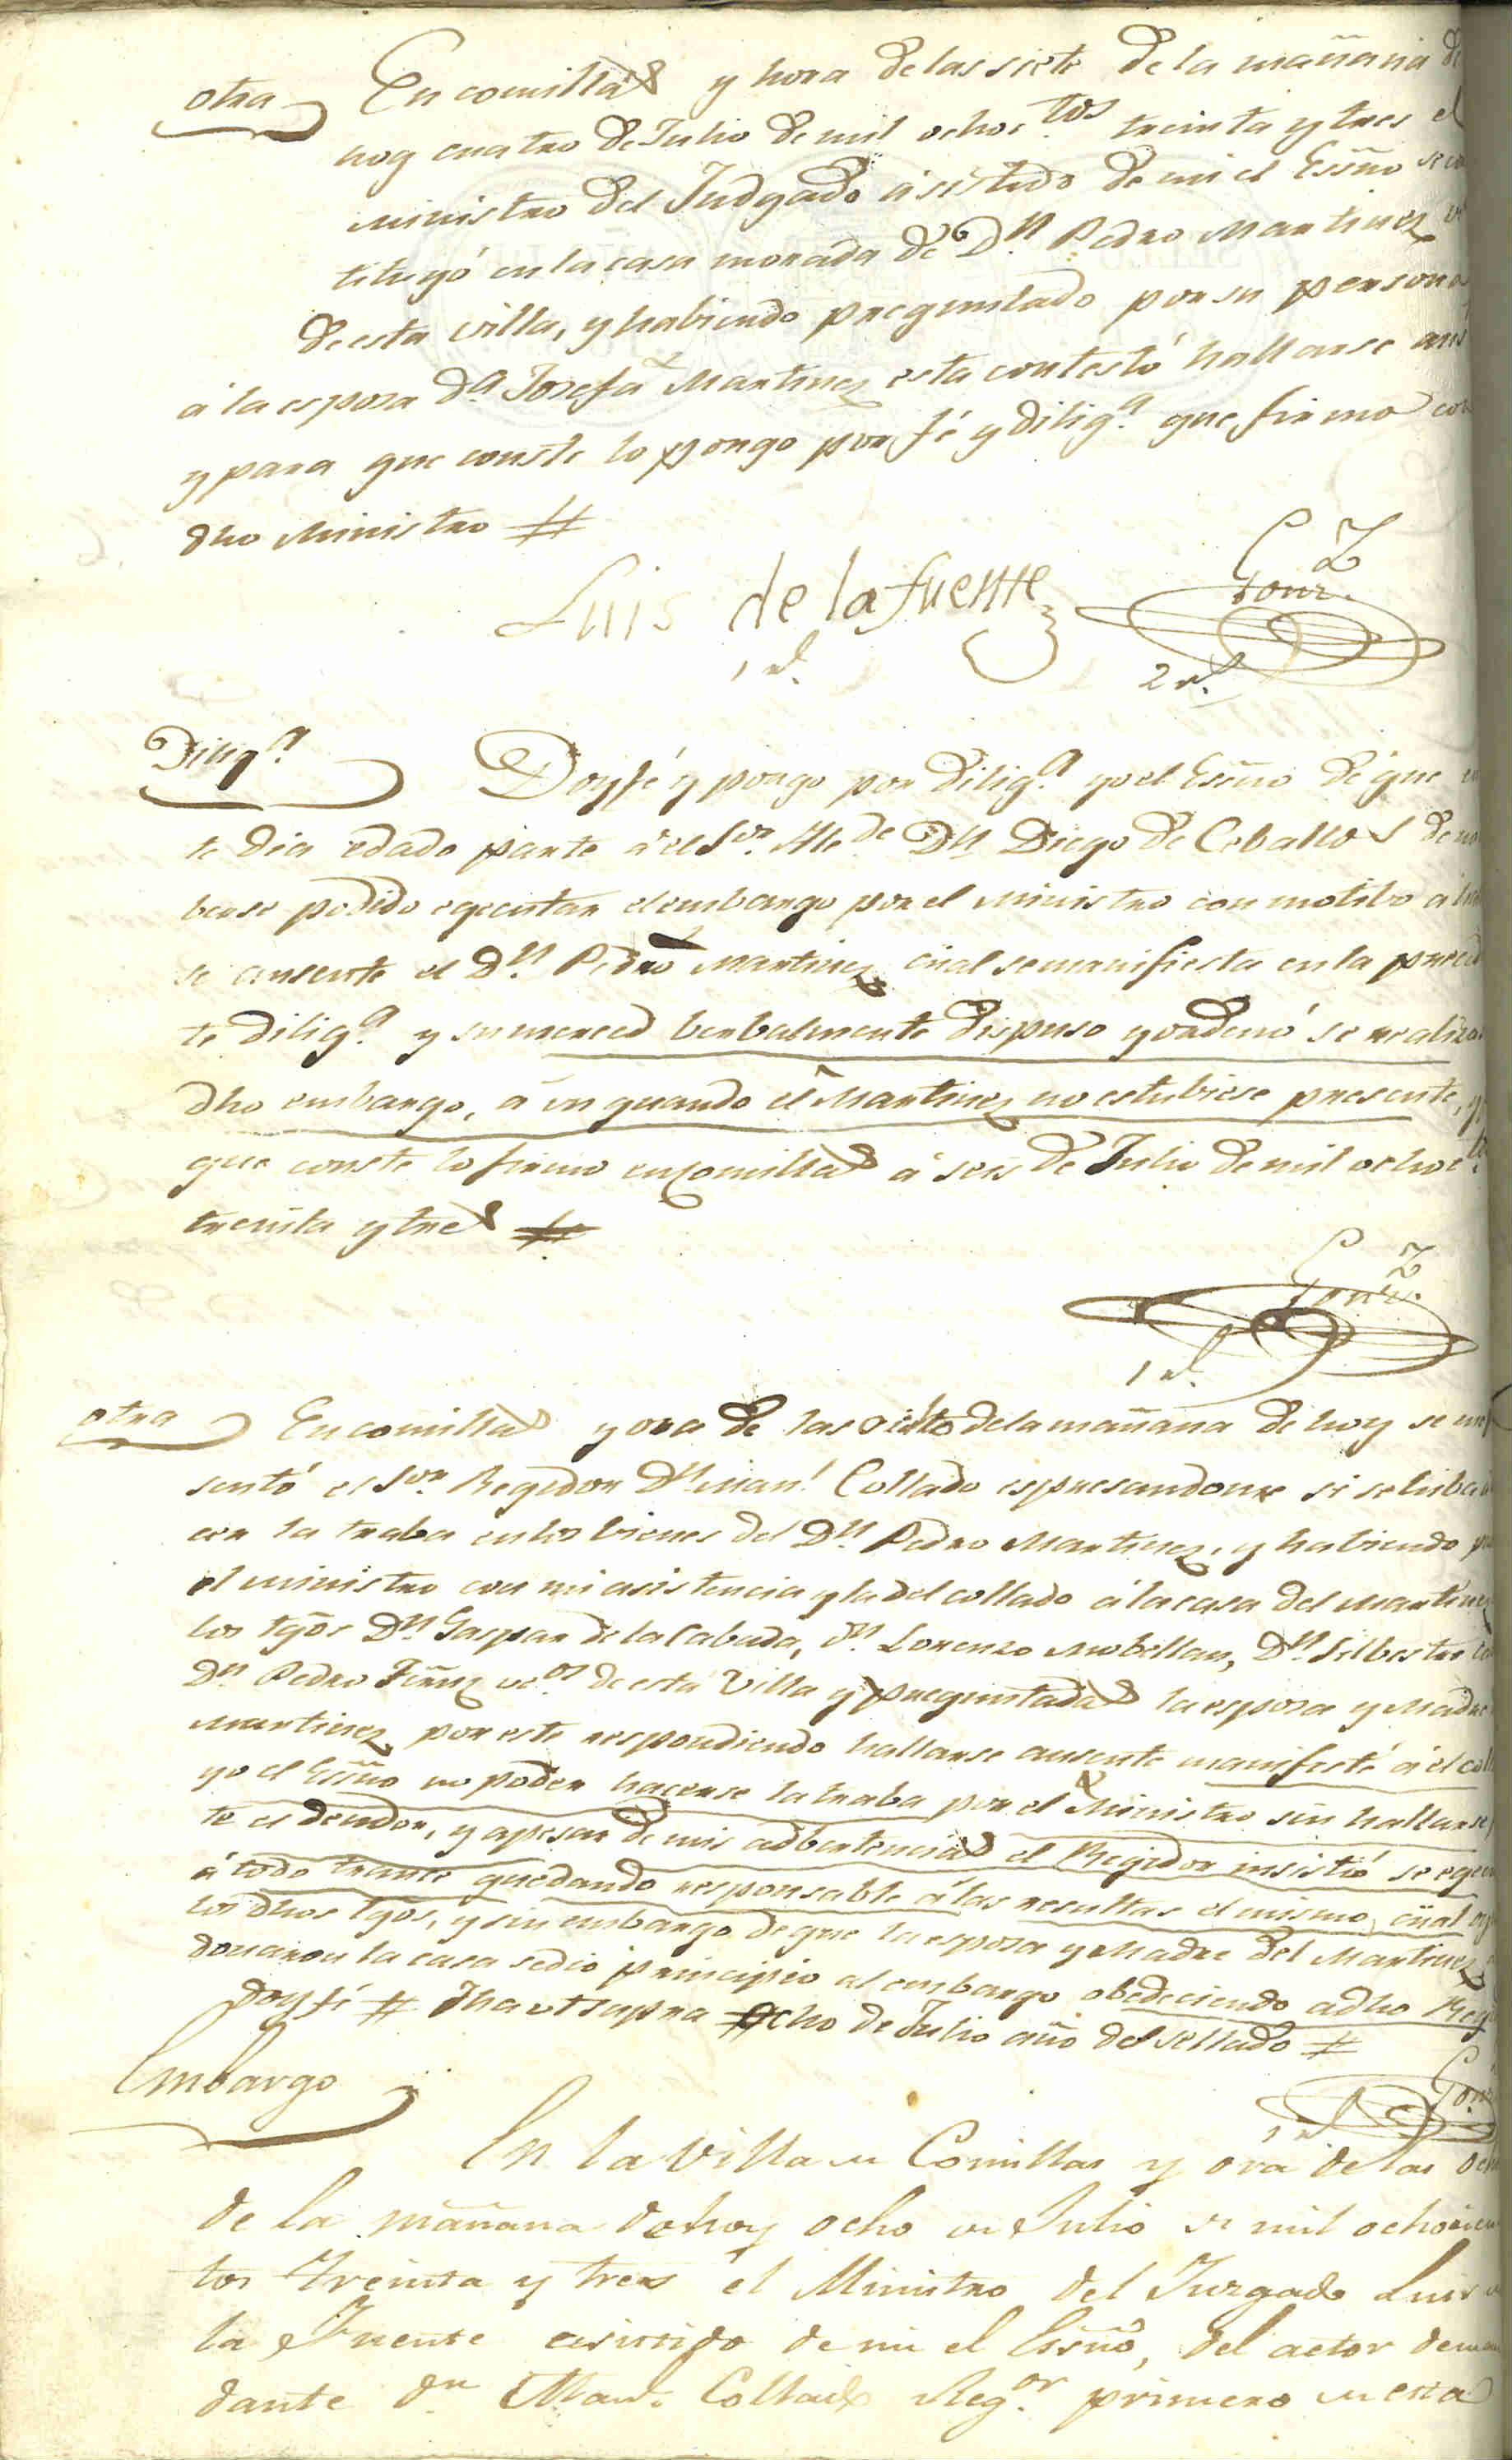 otra En comillas y hora de las siete de la mañana de
hoy cuatro de Julio de mil ochoctos treinta y tres el
ministro del Judgado asistido de mi el Essno se co
tituyó en la casa morada de Dn. Pedro Martinez
de esta villa, y habiendo preguntado por su persona
á la esposa Da. Josefa Martinez esta contestó hallarse
y para que conste lo pongo por fé y diliga. que firmo con
dho Ministro #
Luis de la fuente
Gonz.
1 rl.
2 rs.
Diliga. Doy fé y pongo por diliga. yo el Essno de que
te dia e dado parte a el Sor. Alde Dn. Diego de Ceballos de
berse podido egecutar el embargo por el Ministro con motibo a
se ausente el Dn. Pedro Martinez cual se manifiesta en la preced
te diliga. y su merced berbalmente dispuso y ordenó se realiza
dho embargo, a un quando el Martinez no estubiese presente,
que conste lo firmo en Comillas á seis de Julio de mil ochoc
treinta y tres #
Gonz.
1 rl.
otra En comillas y ora de las ocho de la mañana de hoy se me
sentó el Sor. Regidor Dn. Manl. Collado espresandome si se hiba
cer la traba en los bienes del Dn. Pedro Martinez, y habiendo
el ministro con mi asistencia y la del collado á la casa del Martinez
los tgos Dn. Gaspar de la Cabada, Dn. Lorenzo Mobellan, Dn. Silbestre
Dn. Pedro Fernz vcos. de esta Villa y preguntadas la esposa y Madre
Martinez por este respondiendo hallarse ausente manifesté á el
yo el Essno no poder hacerse la traba por el Ministro sin hallarse
te el deudor, y apesar de mis adbertencias el Regidor insistió se egecu
á todo trance quedando responsable á las resultas el mismo, cual
los dhos tgos, y sin embargo de que la esposa y Madre del Martinez
donaron la casa se dio principio al embargo obedeciendo a dho Reg
doy fé # Fha ut supra ocho de Julio año del sellado #
Gonz
1 rl
Embargo
En la Villa de Comillas y ora de las
de la mañana de hoy ocho de Julio de mil ochocien
tos treinta y tres el Ministro del Juzgado Luis
la Fuente asistido de mi el Essno, del actor deman
dante dn. Manl. Collado Regor. primero de esta